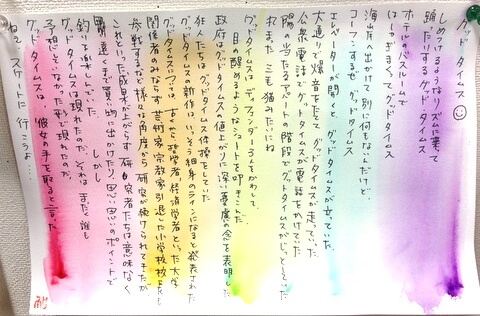 グッドタイムス☺
しめつけるようなリズムに乗って
踊ったりする グッドタイムス
ホテルのバスルームで
はしゃぎまくって グッドタイムス
海岸へ出かけて 別に何もないんだけど、
コーフンするぜ グッドタイムス
エレベーターが開くと、グッドタイムスが立っていた
大通りで爆音をたてて グッドタイムスが走っていった
公衆電話で グッドタイムスが電話をかけていた
陽の当たるアパートの階段でグッドタイムスがじっとしていた
れまた 三毛猫みたいにね
グッドタイムスは ディフェンダー3人をかわして、
目の醒めるようなシュートを叩きこんだ
政府はグッドタイムスの値上がりに深い憂慮の念を表明した
狂人たちは グッドタイムス体操をしていた
グッドタイムスの新作は、いっそう細身のラインになると発表された
グッドタイムスについては、古くから 哲学者、経済学者といった大学
関係者のみならず 芸術家 宗教家 引退した小学校校長も
参戦するなど 様々な角度から 研究が続けられてきたが
これといった成果が上がらず 研究者たちは意味なく
遠くまで買い物に出かけたり、思い思いのポイントで
釣りを楽しんでいた しかし
グッドタイムスは現れたのだ、それは まだ誰も
予想していなかった形で現れたのだ
グッドタイムスは、彼女の手を取ると言った
ねえ、スケートに行こうよ…